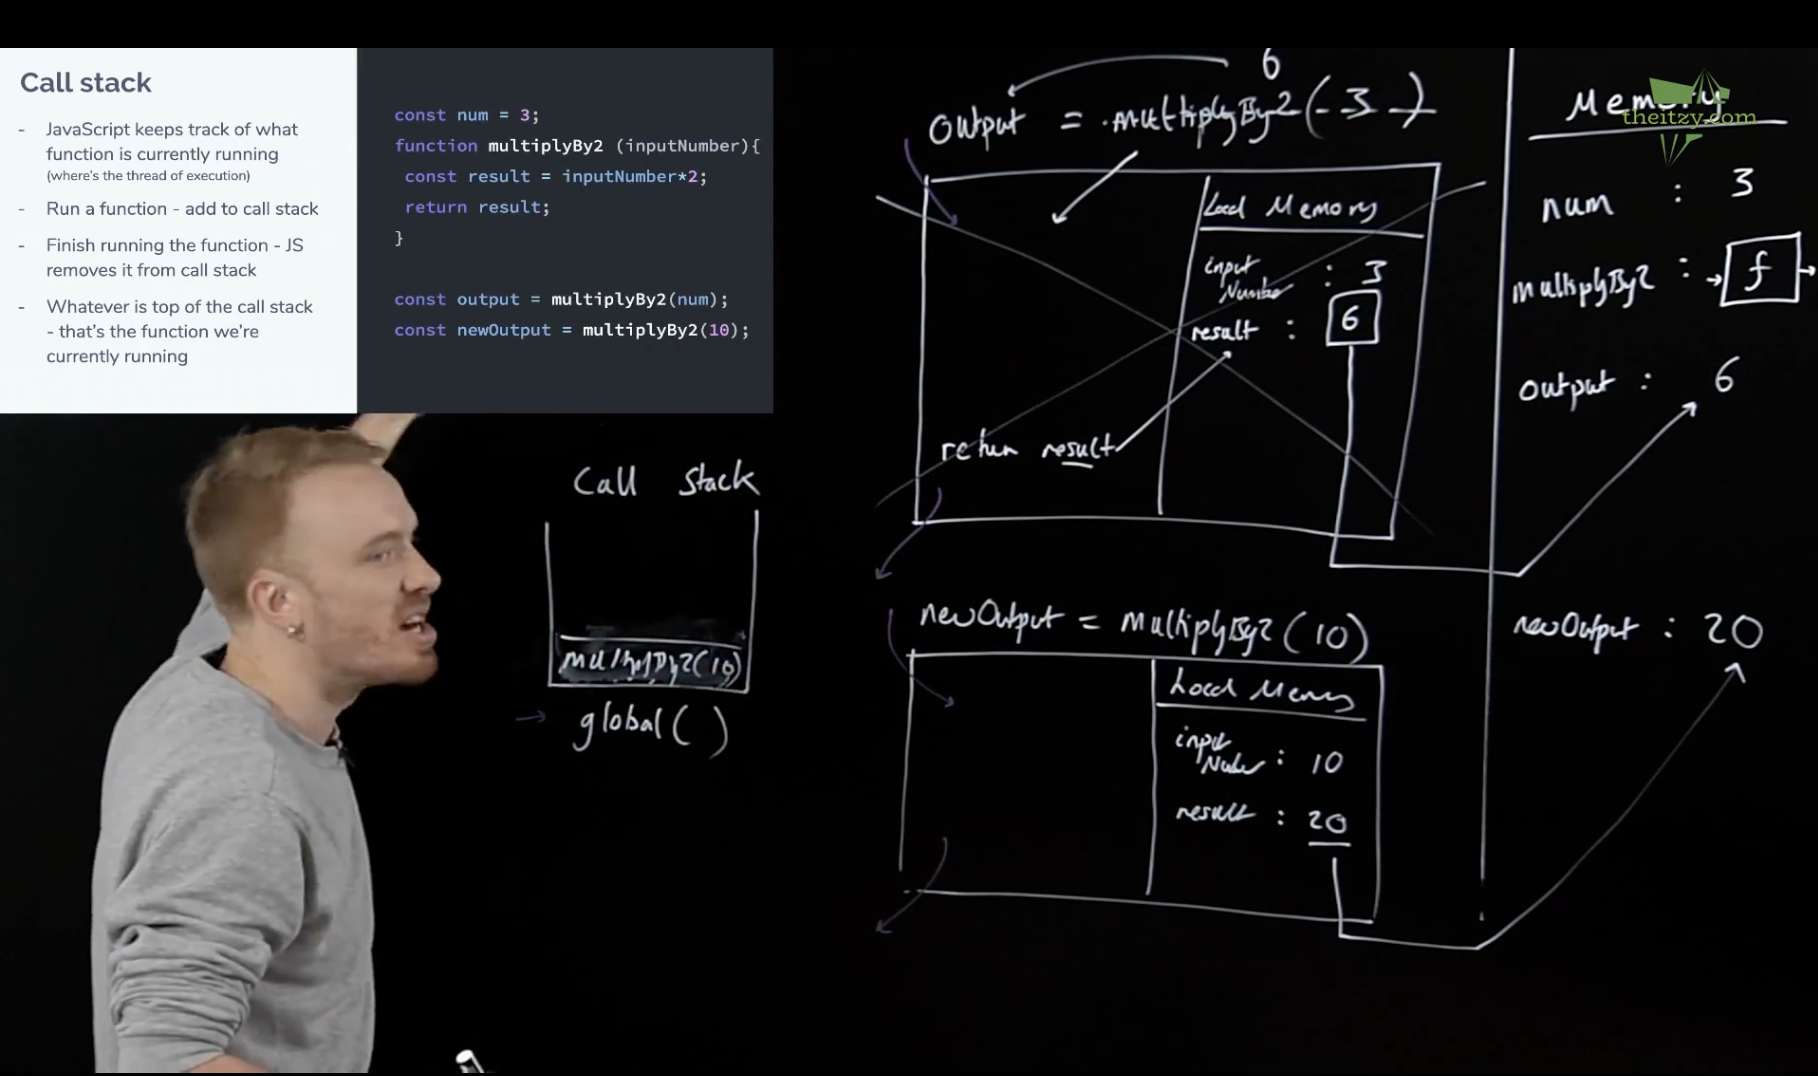 Call stack
- JavaScript keeps track of what
function is currently running
(where's the thread of execution)
- Run a function - add to call stack
- Finish running the function - JS
removes it from call stack
- Whatever is top of the call stack
- that's the function we're
currently running
const num = 3;
function multiplyBy2 (inputNumber){
const result = inputNumber*2;
return result;
}
const output = multiplyBy2(num);
const newOutput = multiplyBy2(10);
Call Stack
multiplyBy2(10)
global( )
6
output = multiplyBy2( 3 )
Local Memory
input
Number : 3
result : 6
return result
newOutput = multiplyBy2 ( 10 )
Local Memory
input
Number : 10
result : 20
Memory
theitzy.com
num : 3
multiplyBy2 : f
output : 6
newOutput : 20